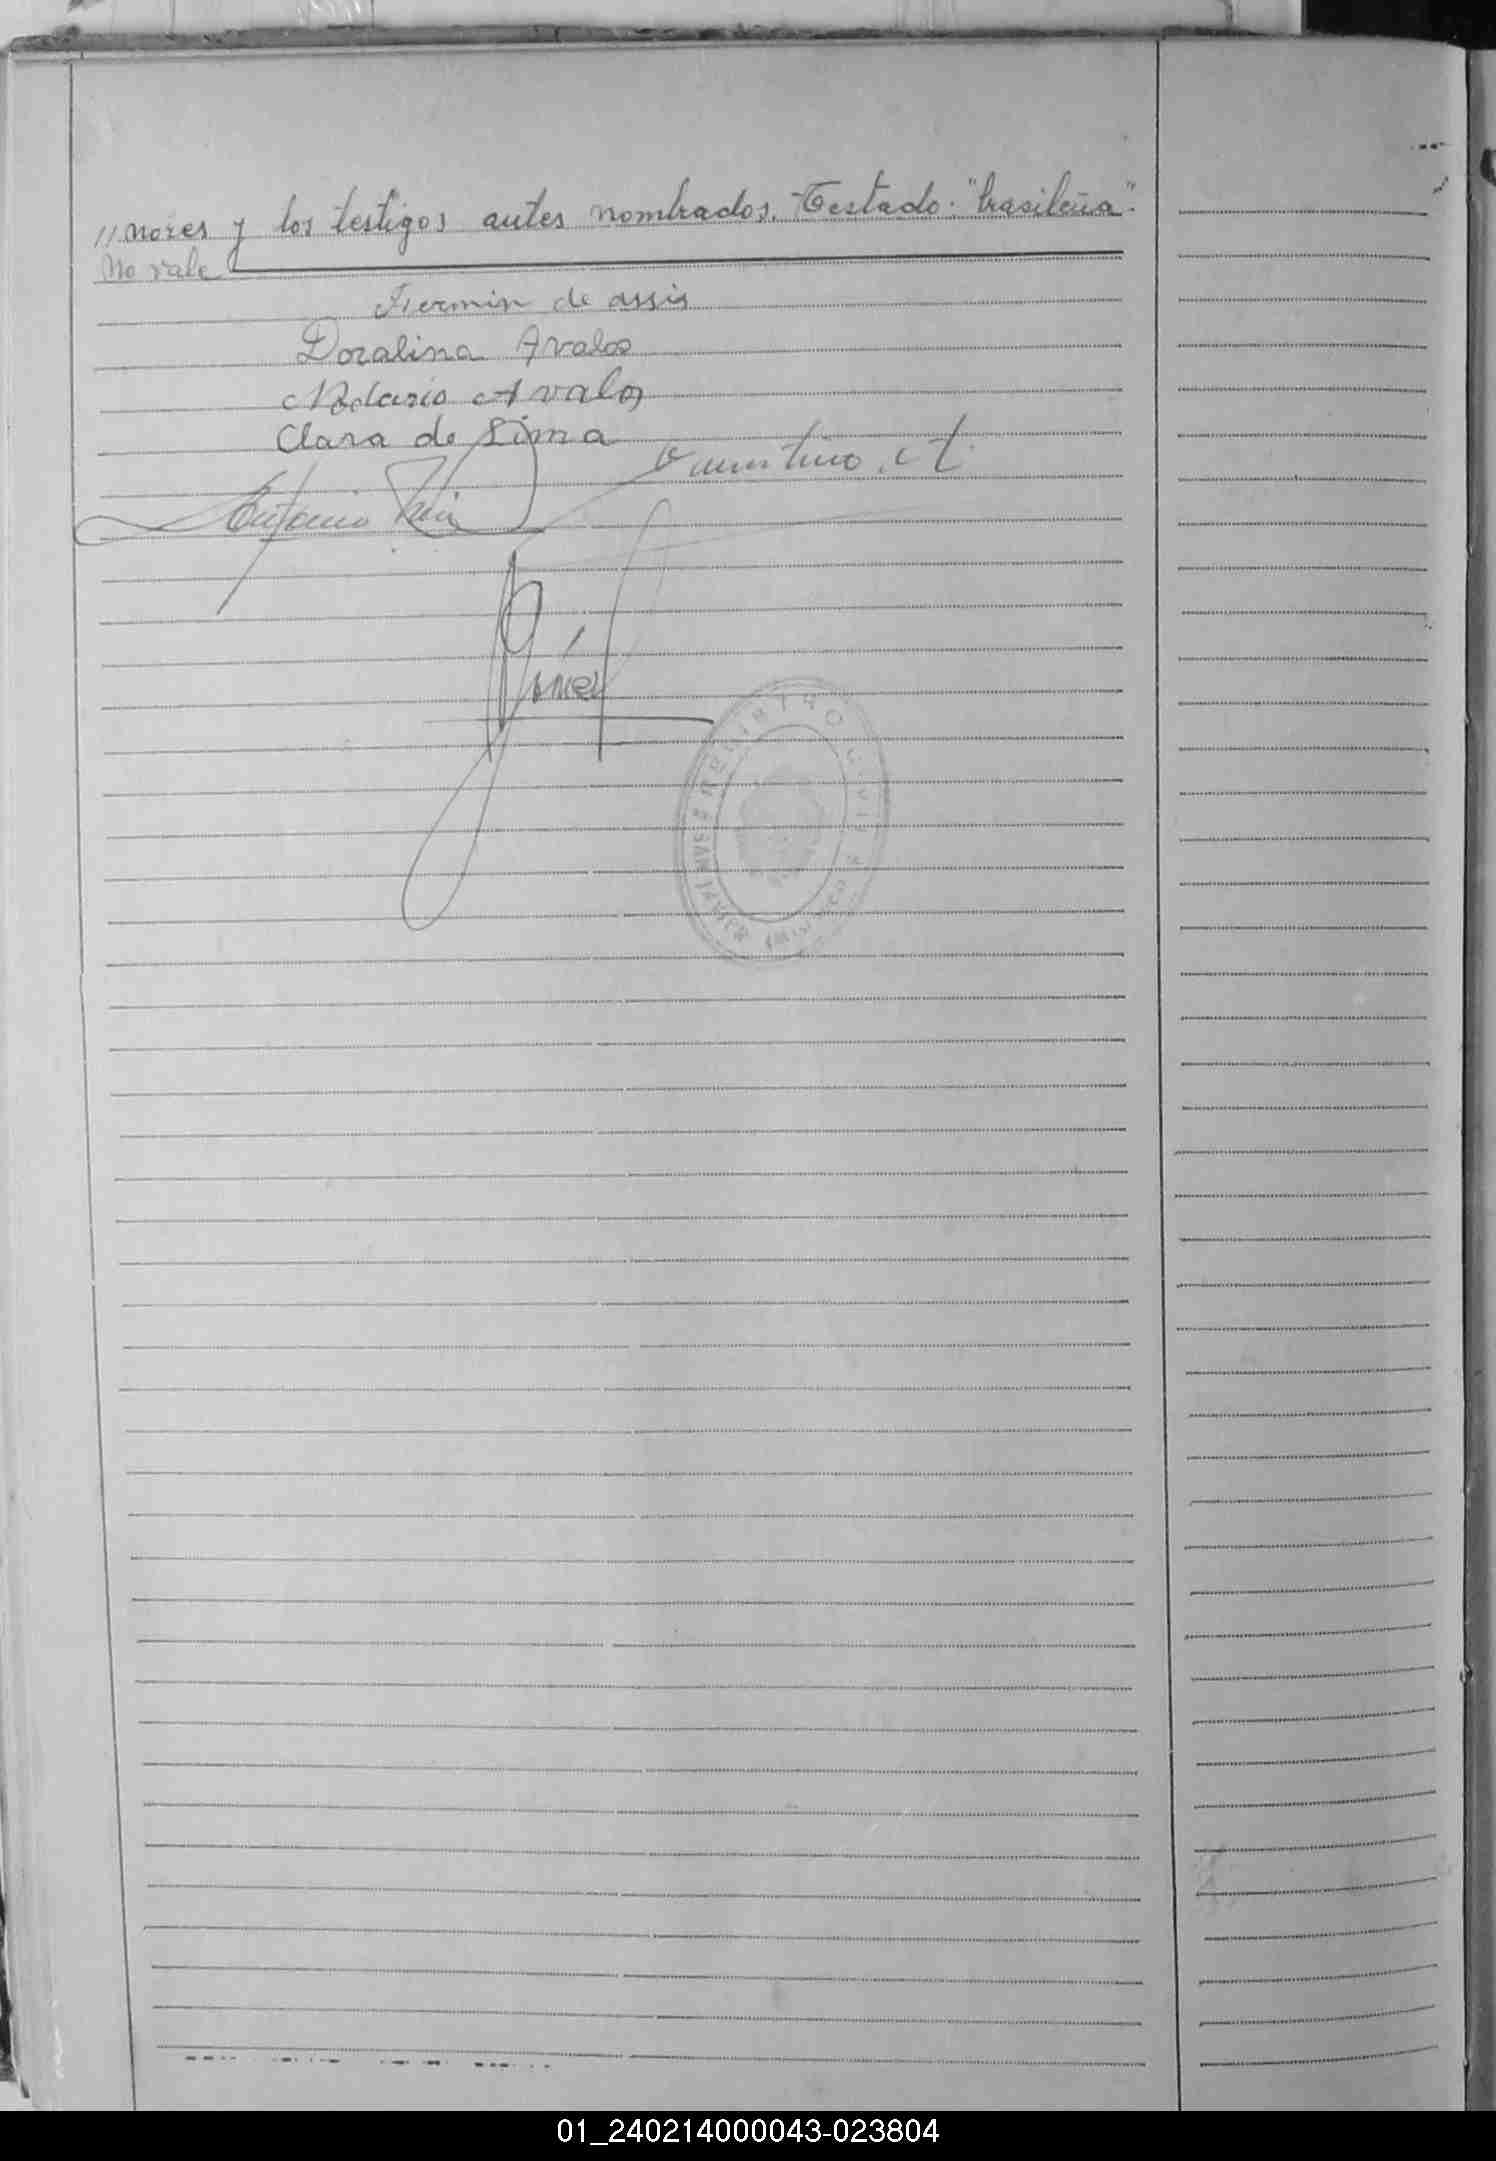 // nores y los testigos antes nombrados. Testado: "brasileña".
No vale
Fermin de assis
Doralina Avalos
Avalos
Clara de Lima
Antonio
REGISTRO CIVIL
SAN JAVIER (MISIONES)
01_240214000043-023804